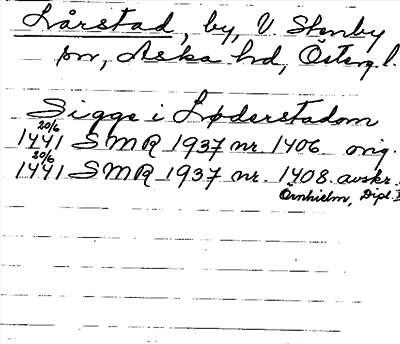 Lårstad, by, V. Stenby
sn, Aska hd, Österg. l.
Sigge i Løderstadom
20/6
1441 SMR 1937 nr 1406 orig.
20/6
1441 SMR 1937 nr. 1408 avskr.
Örnhielm, Dipl.